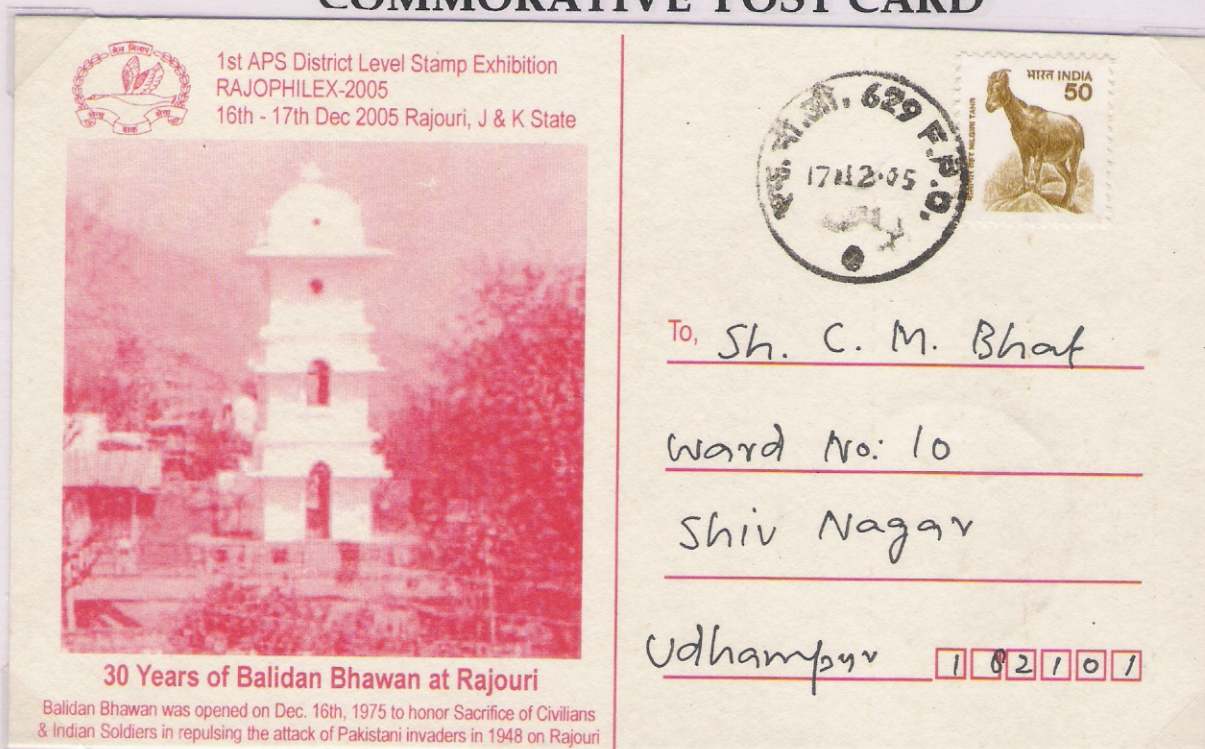 COMMORATIVE POST CARD
1st APS District Level Stamp Exhibition
RAJOPHILEX-2005
16th - 17th Dec 2005 Rajouri, J & K State
30 Years of Balidan Bhawan at Rajouri
Balidan Bhawan was opened on Dec. 16th, 1975 to honor Sacrifice of Civilians
& Indian Soldiers in repulsing the attack of Pakistani invaders in 1948 on Rajouri
629 F.P.O.
17.12.05
भारत INDIA
50
NILGIRI TAHR
To, Sh. C. M. Bhat
Ward No: 10
Shiv Nagar
Udhampur 182101